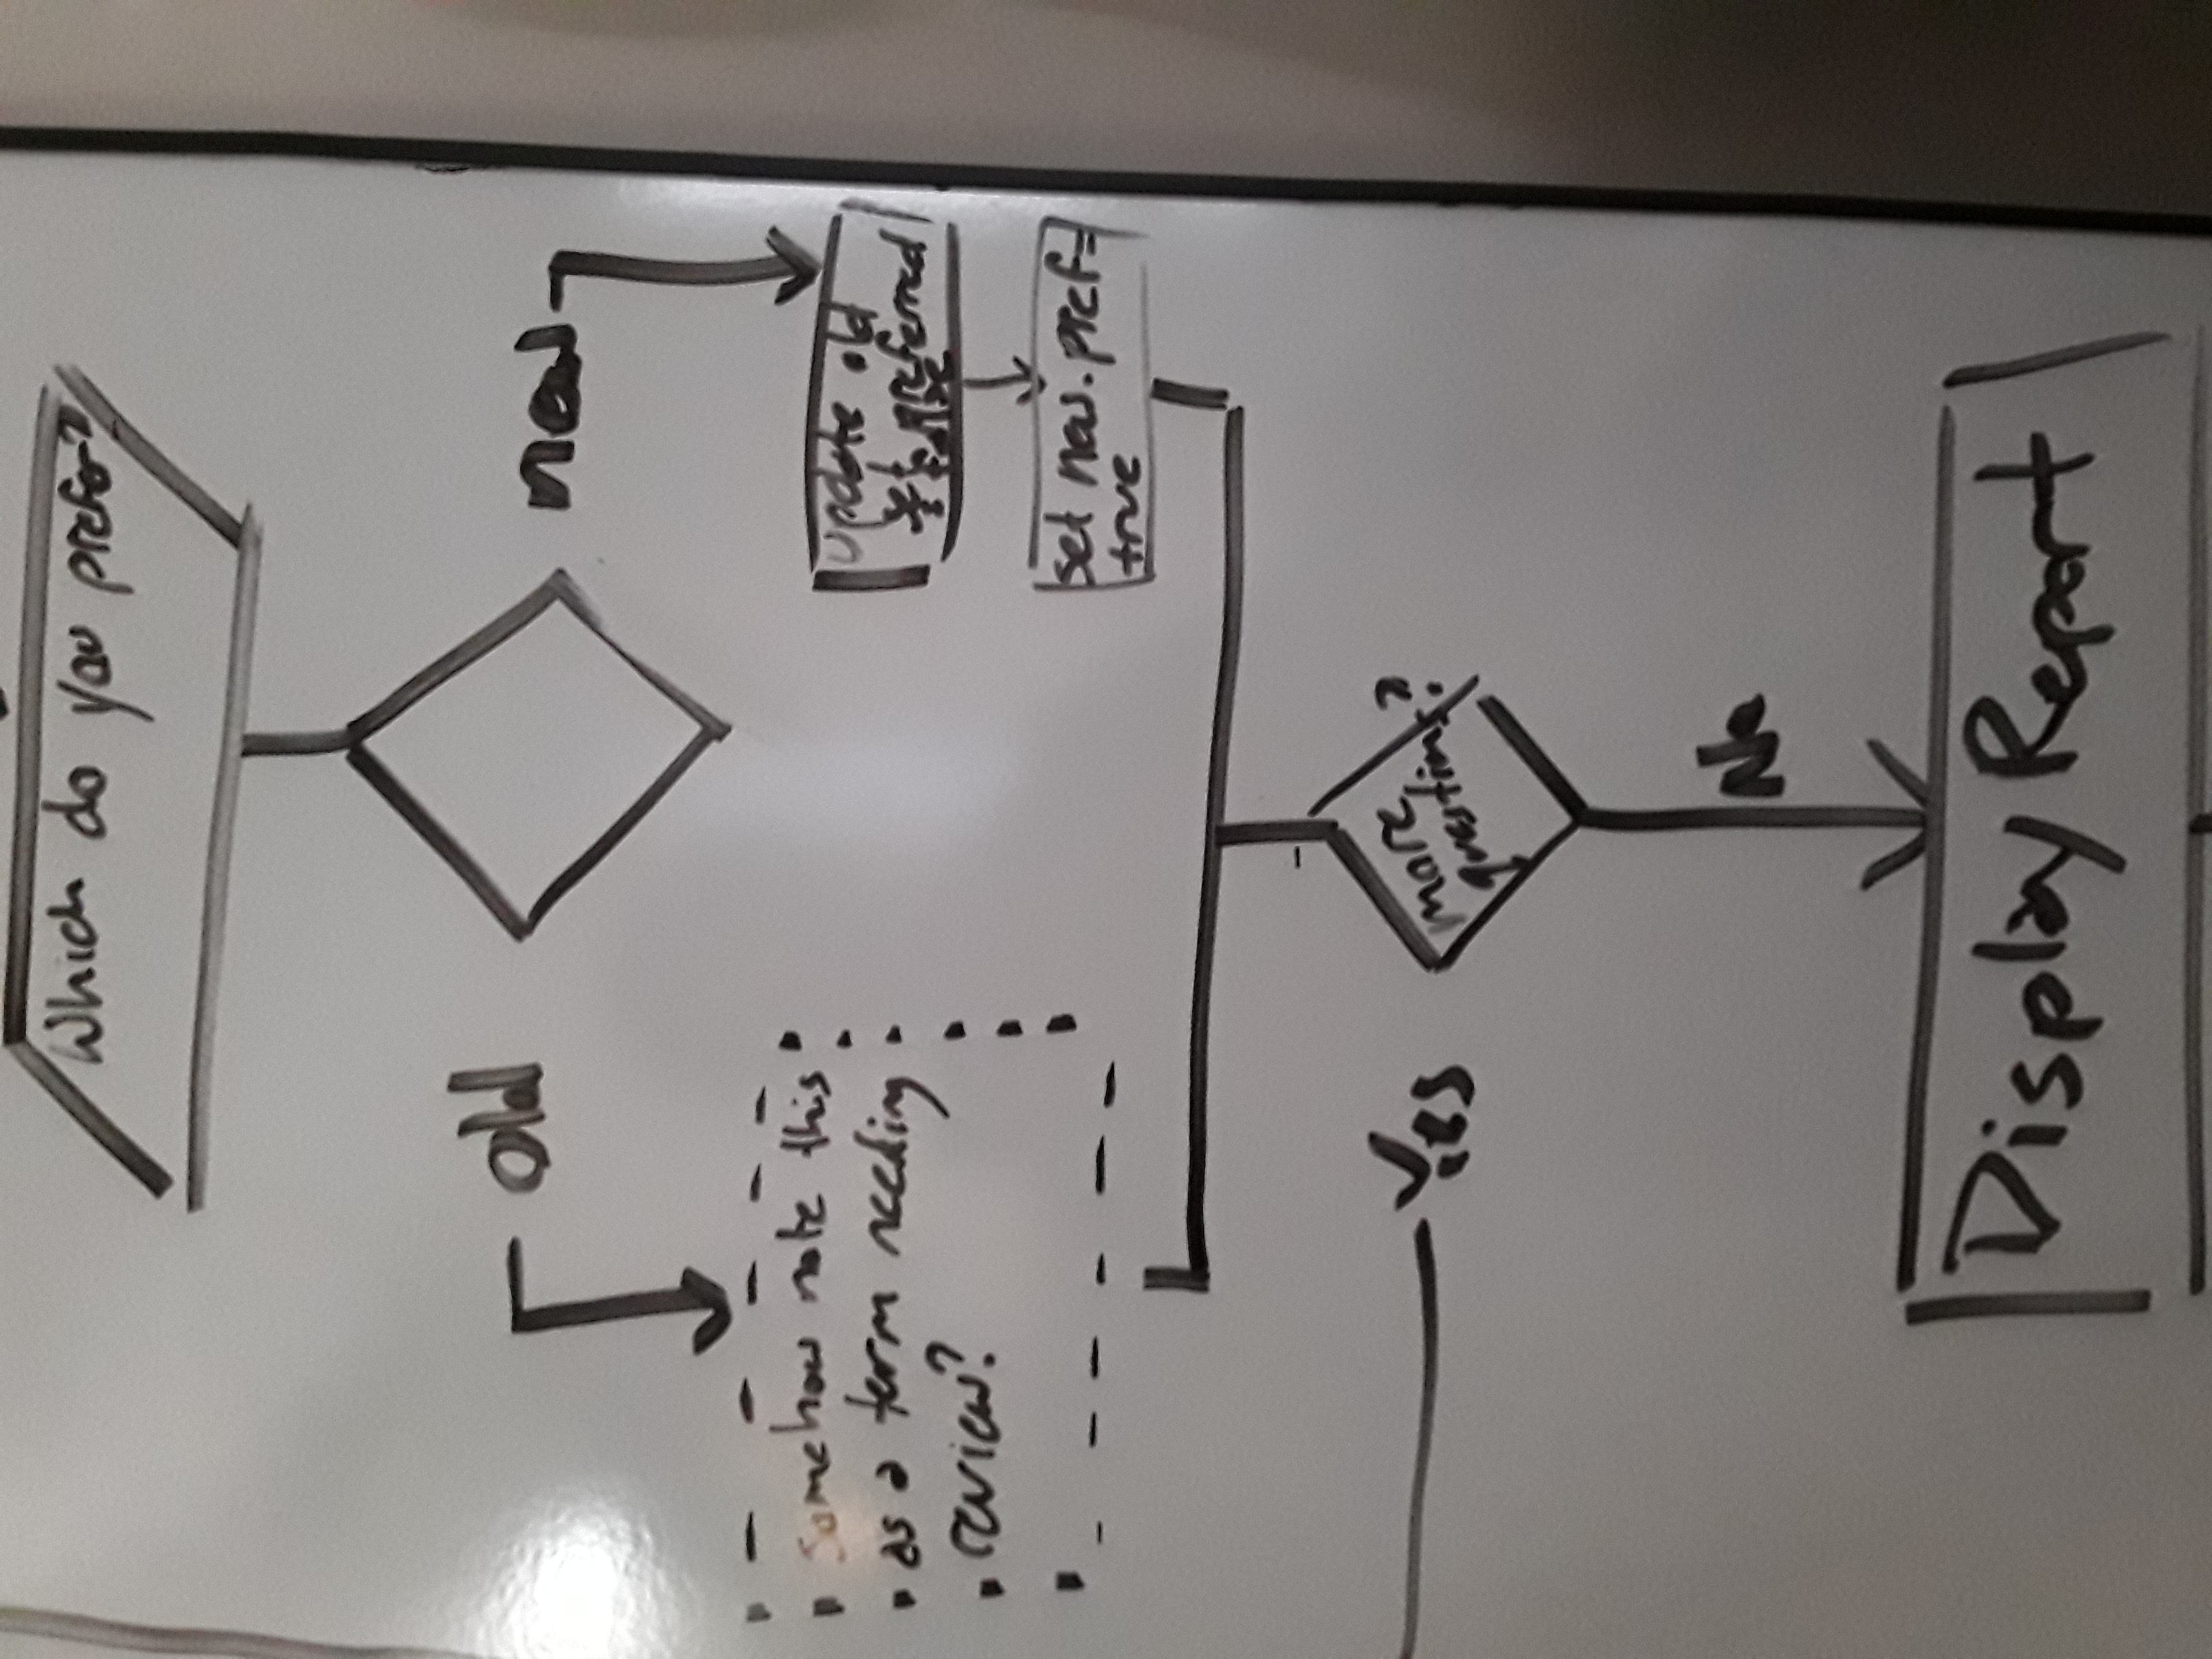 Which do you prefer?
old
new
Somehow note this
as a term needing
review?
update old
set preferred
to false
set new.pref=
true
more
questions?
Yes
No
Display Report